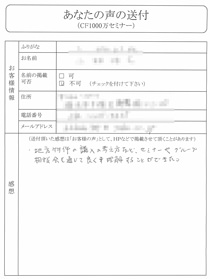 あなたの声の送付
(CF1000万セミナー)
お客様情報
ふりがな
お名前
名前の掲載可否
□ 可
☑ 不可 (チェックを付けて下さい)
住所
電話番号
メールアドレス
感想
(送付頂いた感想は「お客様の声」として、HPなどで掲載させて頂くことがあります)
地方物件の購入の考え方など、セミナーやグループ
相談会を通じて良く理解することができた。